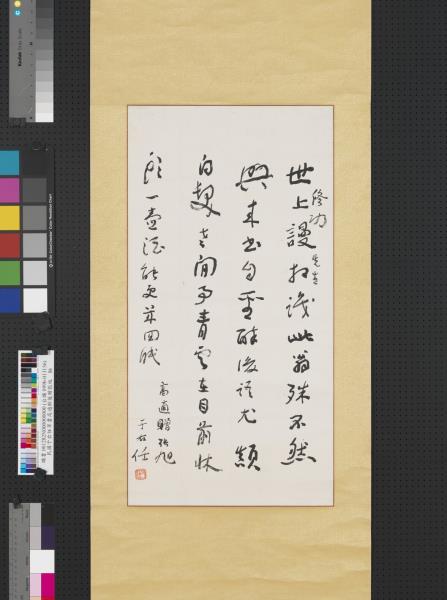 世上謾相識此翁殊不然
先生
興來書自聖醉後語尤顛
白髮老閒事青雲在目前牀
頭一壺酒能更幾回眠
高適贈張旭
于右任
Kodak